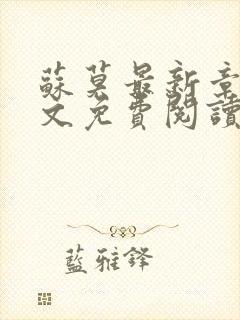 蘇莫最新章
文免費閱讀
藍雅鋒